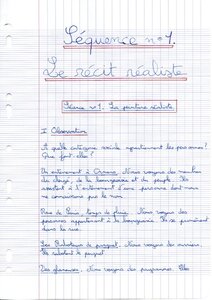 Séquence n°1
Le récit réaliste
Séance n°1. La peinture réaliste.
I Observation
A quelle catégorie sociale appartiennent les personnes?
Que font-elles?
Un enterrement à Ornans. Nous voyons des membres
du clergé, de la bourgeoisie et du peuple. Ils
assistent à l'enterrement d'une personne dont nous
ne connaissons pas le nom.
Rue de Paris, temps de pluie. Nous voyons des
personnes appartenant à la bourgeoisie. Ils se promènent
dans la rue.
Les Raboteurs de parquet. Nous voyons des ouvriers.
Ils rabotent le parquet.
Des glaneuses. Nous voyons des paysannes. Elles